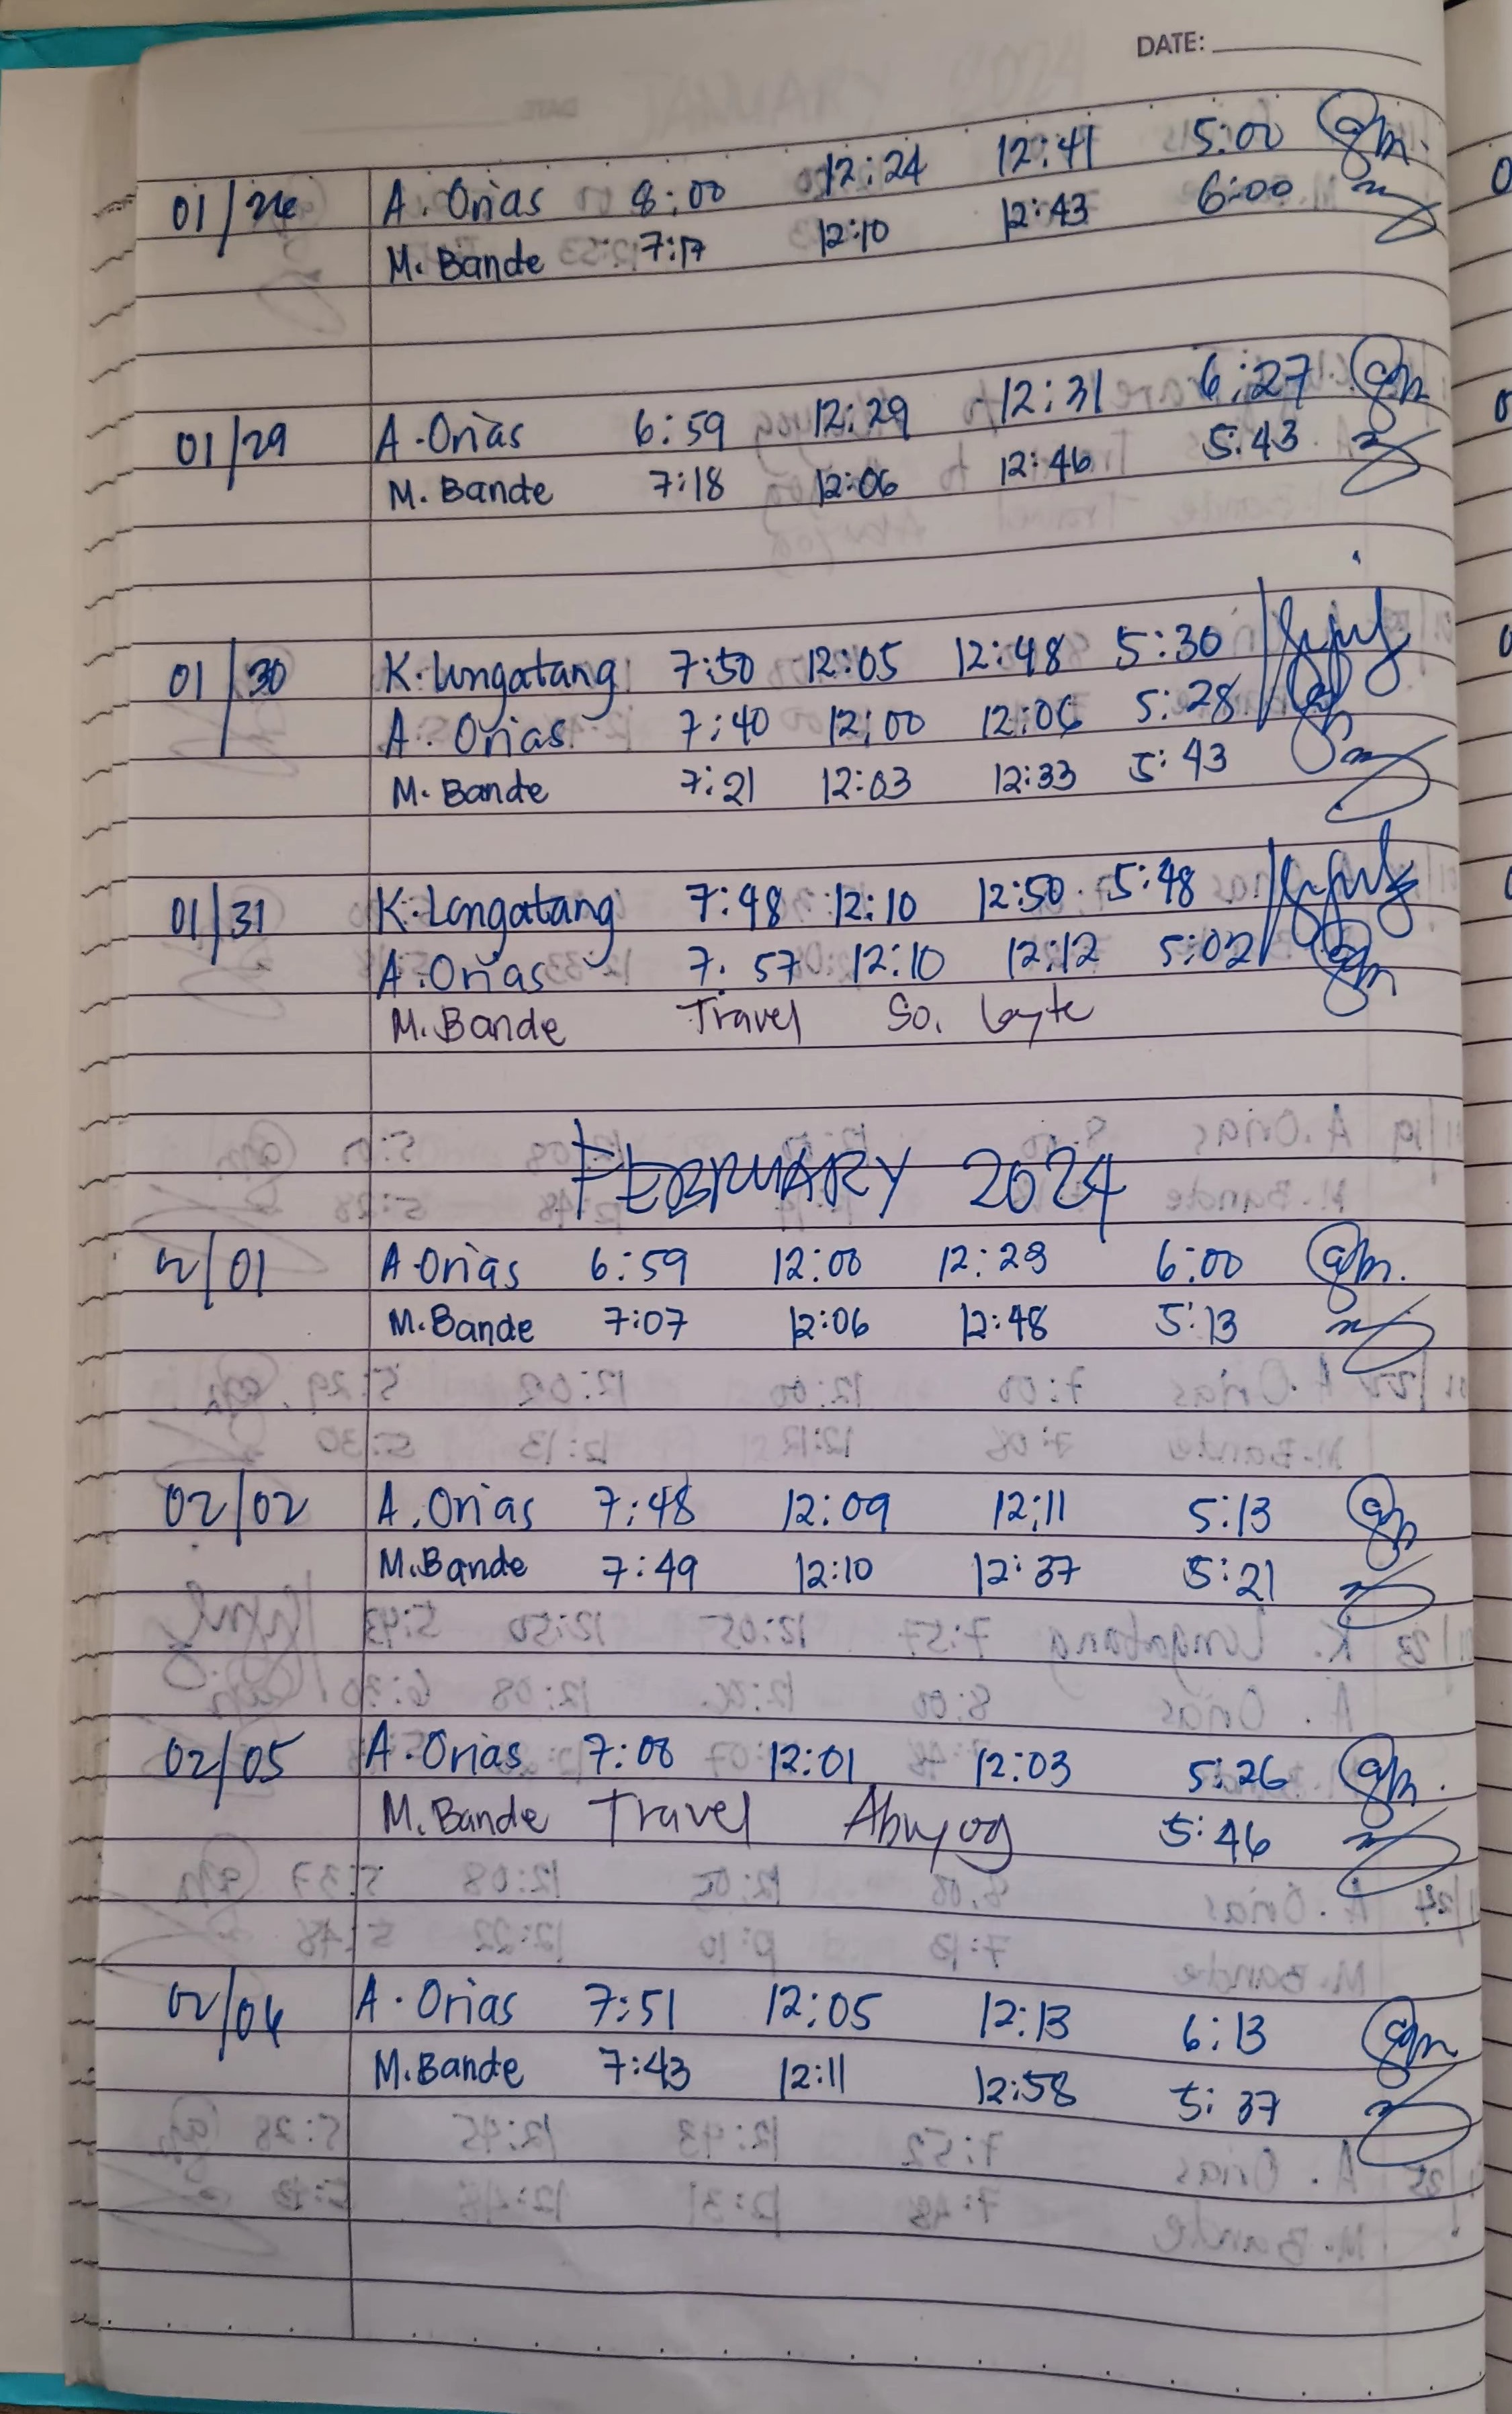 DATE:
01/26 A. Orias 8:00 12:24 12:41 5:00
M. Bande 7:17 12:10 12:43 6:00
01/29 A. Orias 6:59 12:29 12:31 6:27
M. Bande 7:18 12:06 12:46 5:43
01/30 K. Longatang 7:50 12:05 12:48 5:30
A. Orias 7:40 12:00 12:06 5:28
M. Bande 7:21 12:03 12:33 5:43
01/31 K. Longatang 7:48 12:10 12:50 5:48
A. Orias 7:57 12:10 12:12 5:02
M. Bande Travel So. Leyte
FEBRUARY 2024
2/01 A. Orias 6:59 12:00 12:29 6:00
M. Bande 7:07 12:06 12:48 5:13
02/02 A. Orias 7:48 12:09 12:11 5:13
M. Bande 7:49 12:10 12:37 5:21
02/05 A. Orias 7:00 12:01 12:03 5:26
M. Bande Travel Abuyog 5:46
02/06 A. Orias 7:51 12:05 12:13 6:13
M. Bande 7:43 12:11 12:58 5:37